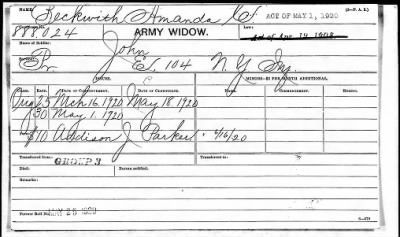 (3—P. A. B.)
Beckwith Amanda C. ACT OF MAY 1, 1920
888,024 ARMY WIDOW. Act of Apr. 19, 1908.
Name of Soldier:
John
Pr. E, 104 N.Y. Inf.
ISSUE. MINORS—$2 PER MONTH ADDITIONAL.
CLASS. RATE. DATE OF COMMENCEMENT. DATE OF CERTIFICATE. NAMES. COMMENCEMENT. ENDING.
Orig 25 Mch 16, 1920 May 18 1920
30 May 1, 1920
$10 Addison J Parker 6/16/20
Transferred from: GROUP 3 Transferred to:
Died: Bureau notified:
Remarks:
Former Roll No. MAY 25 1920